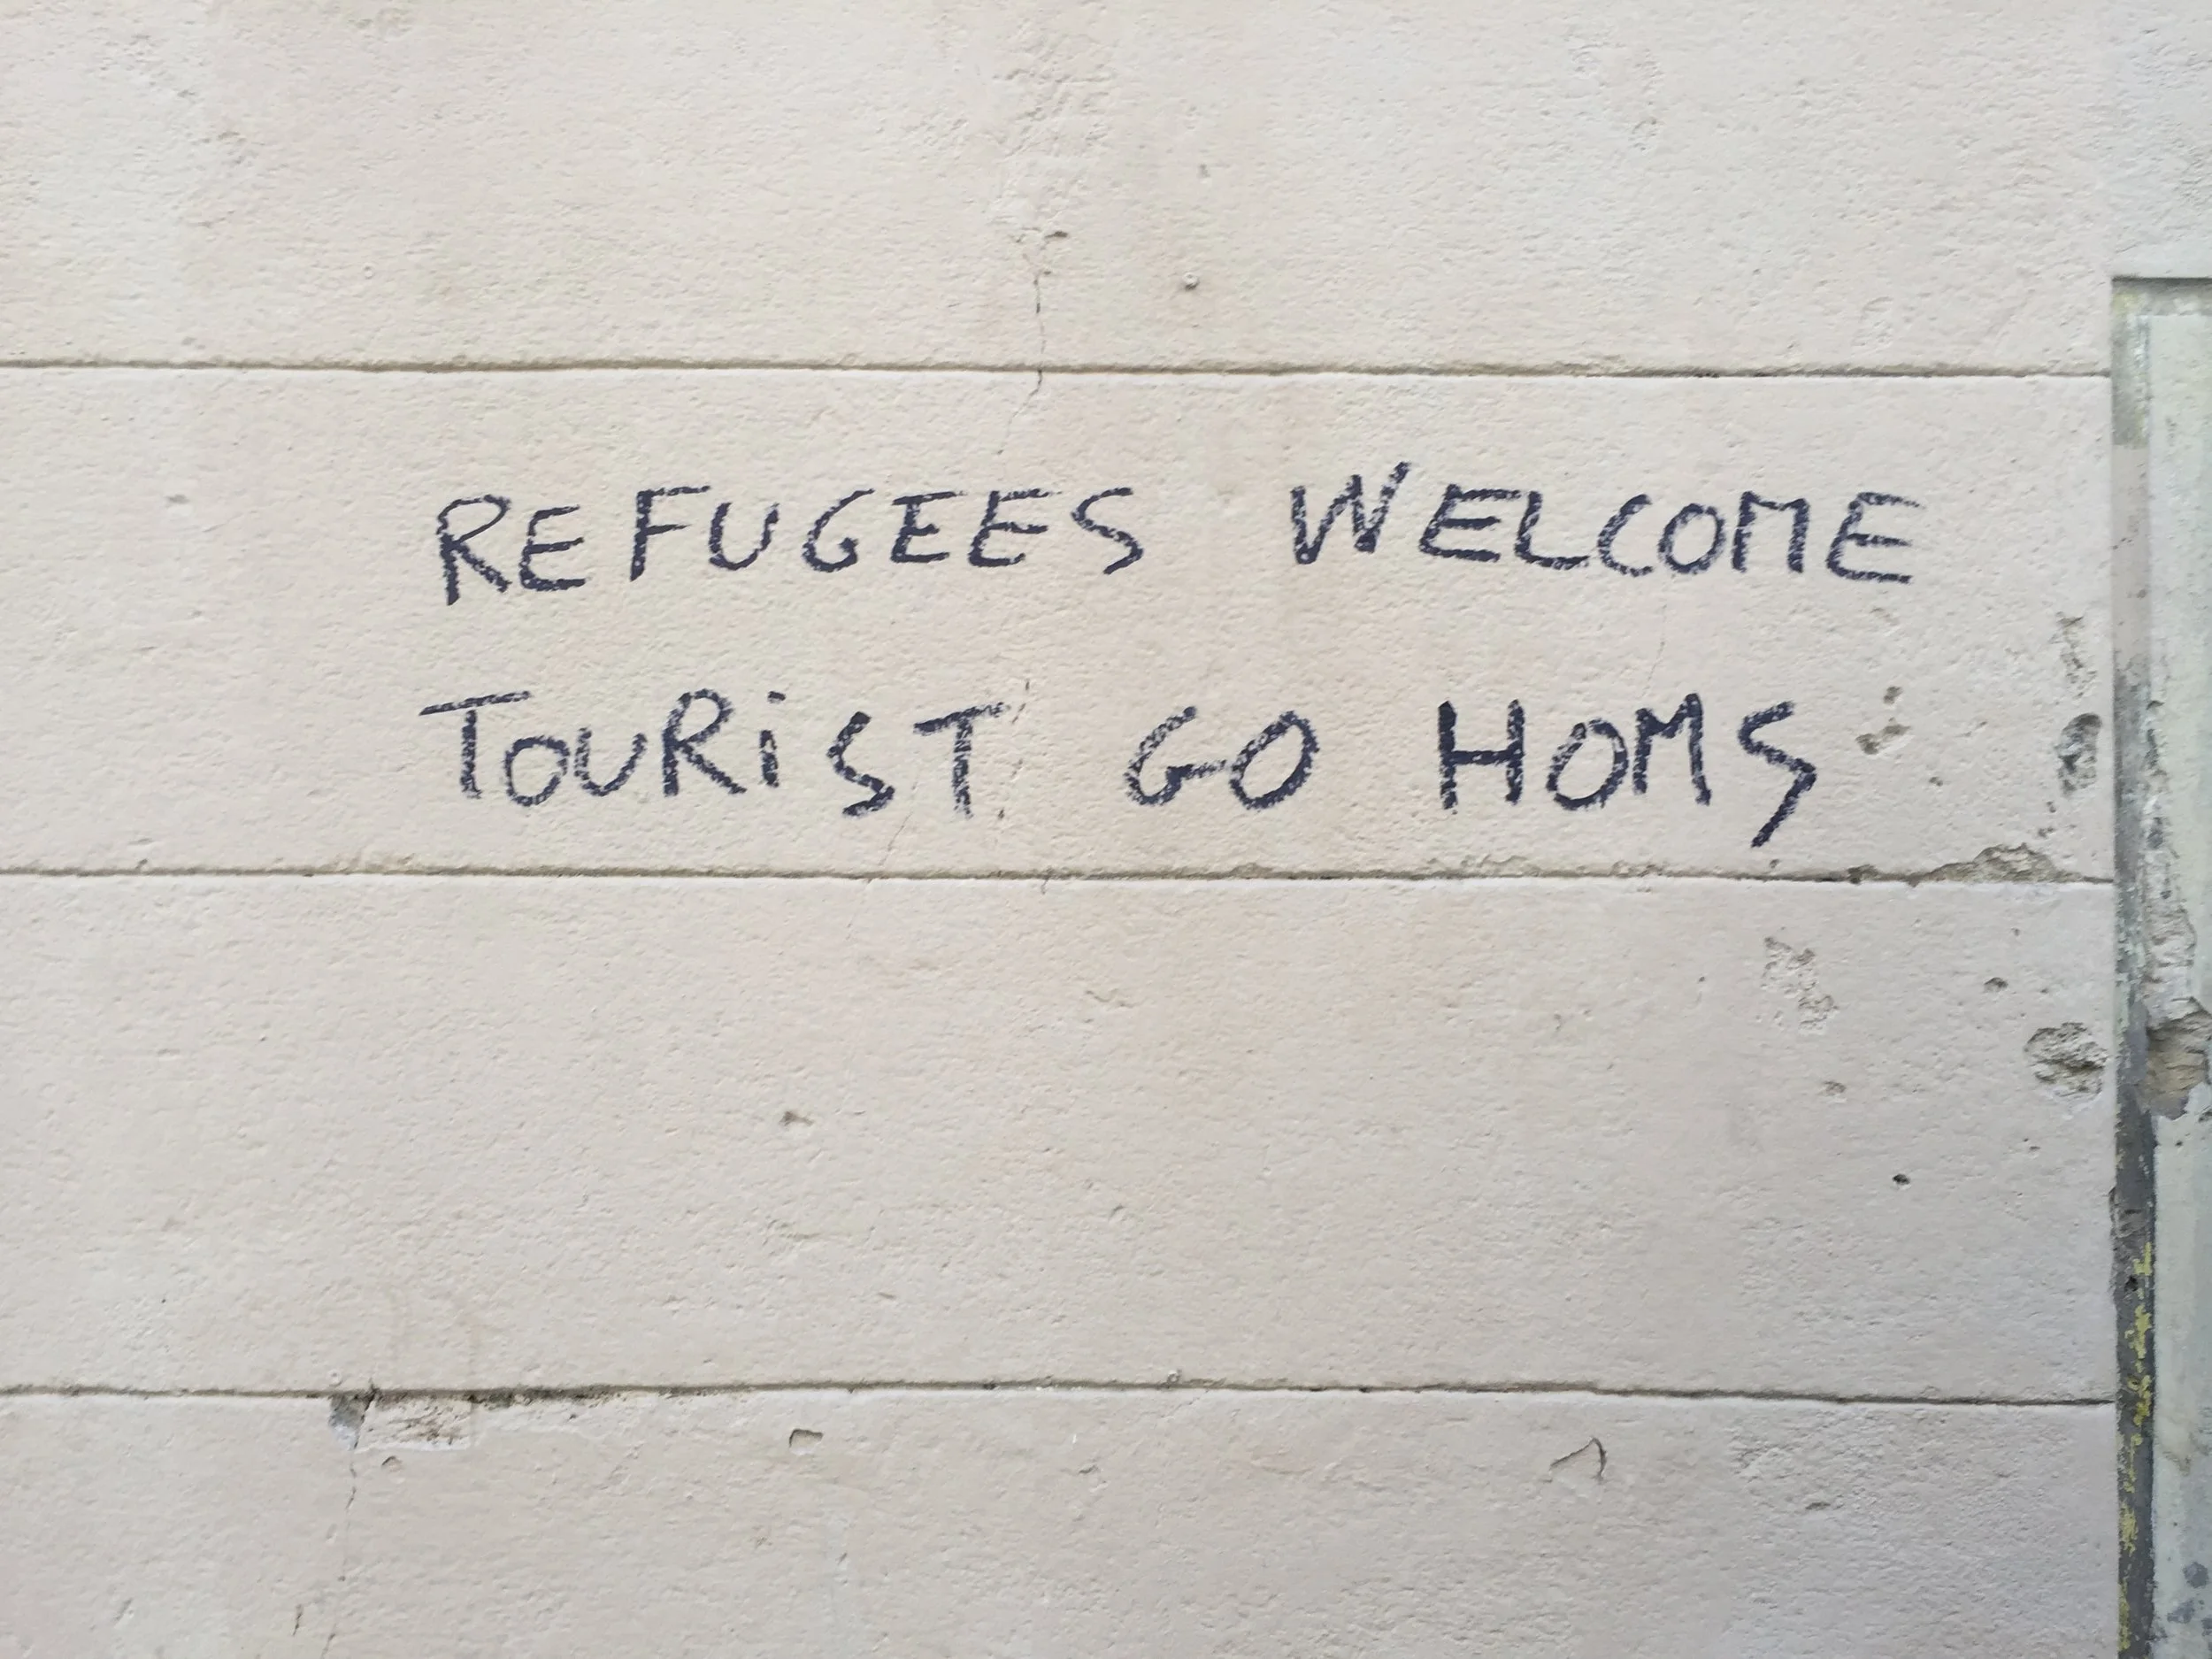 REFUGEES WELCOME
TOURiST GO HOMS